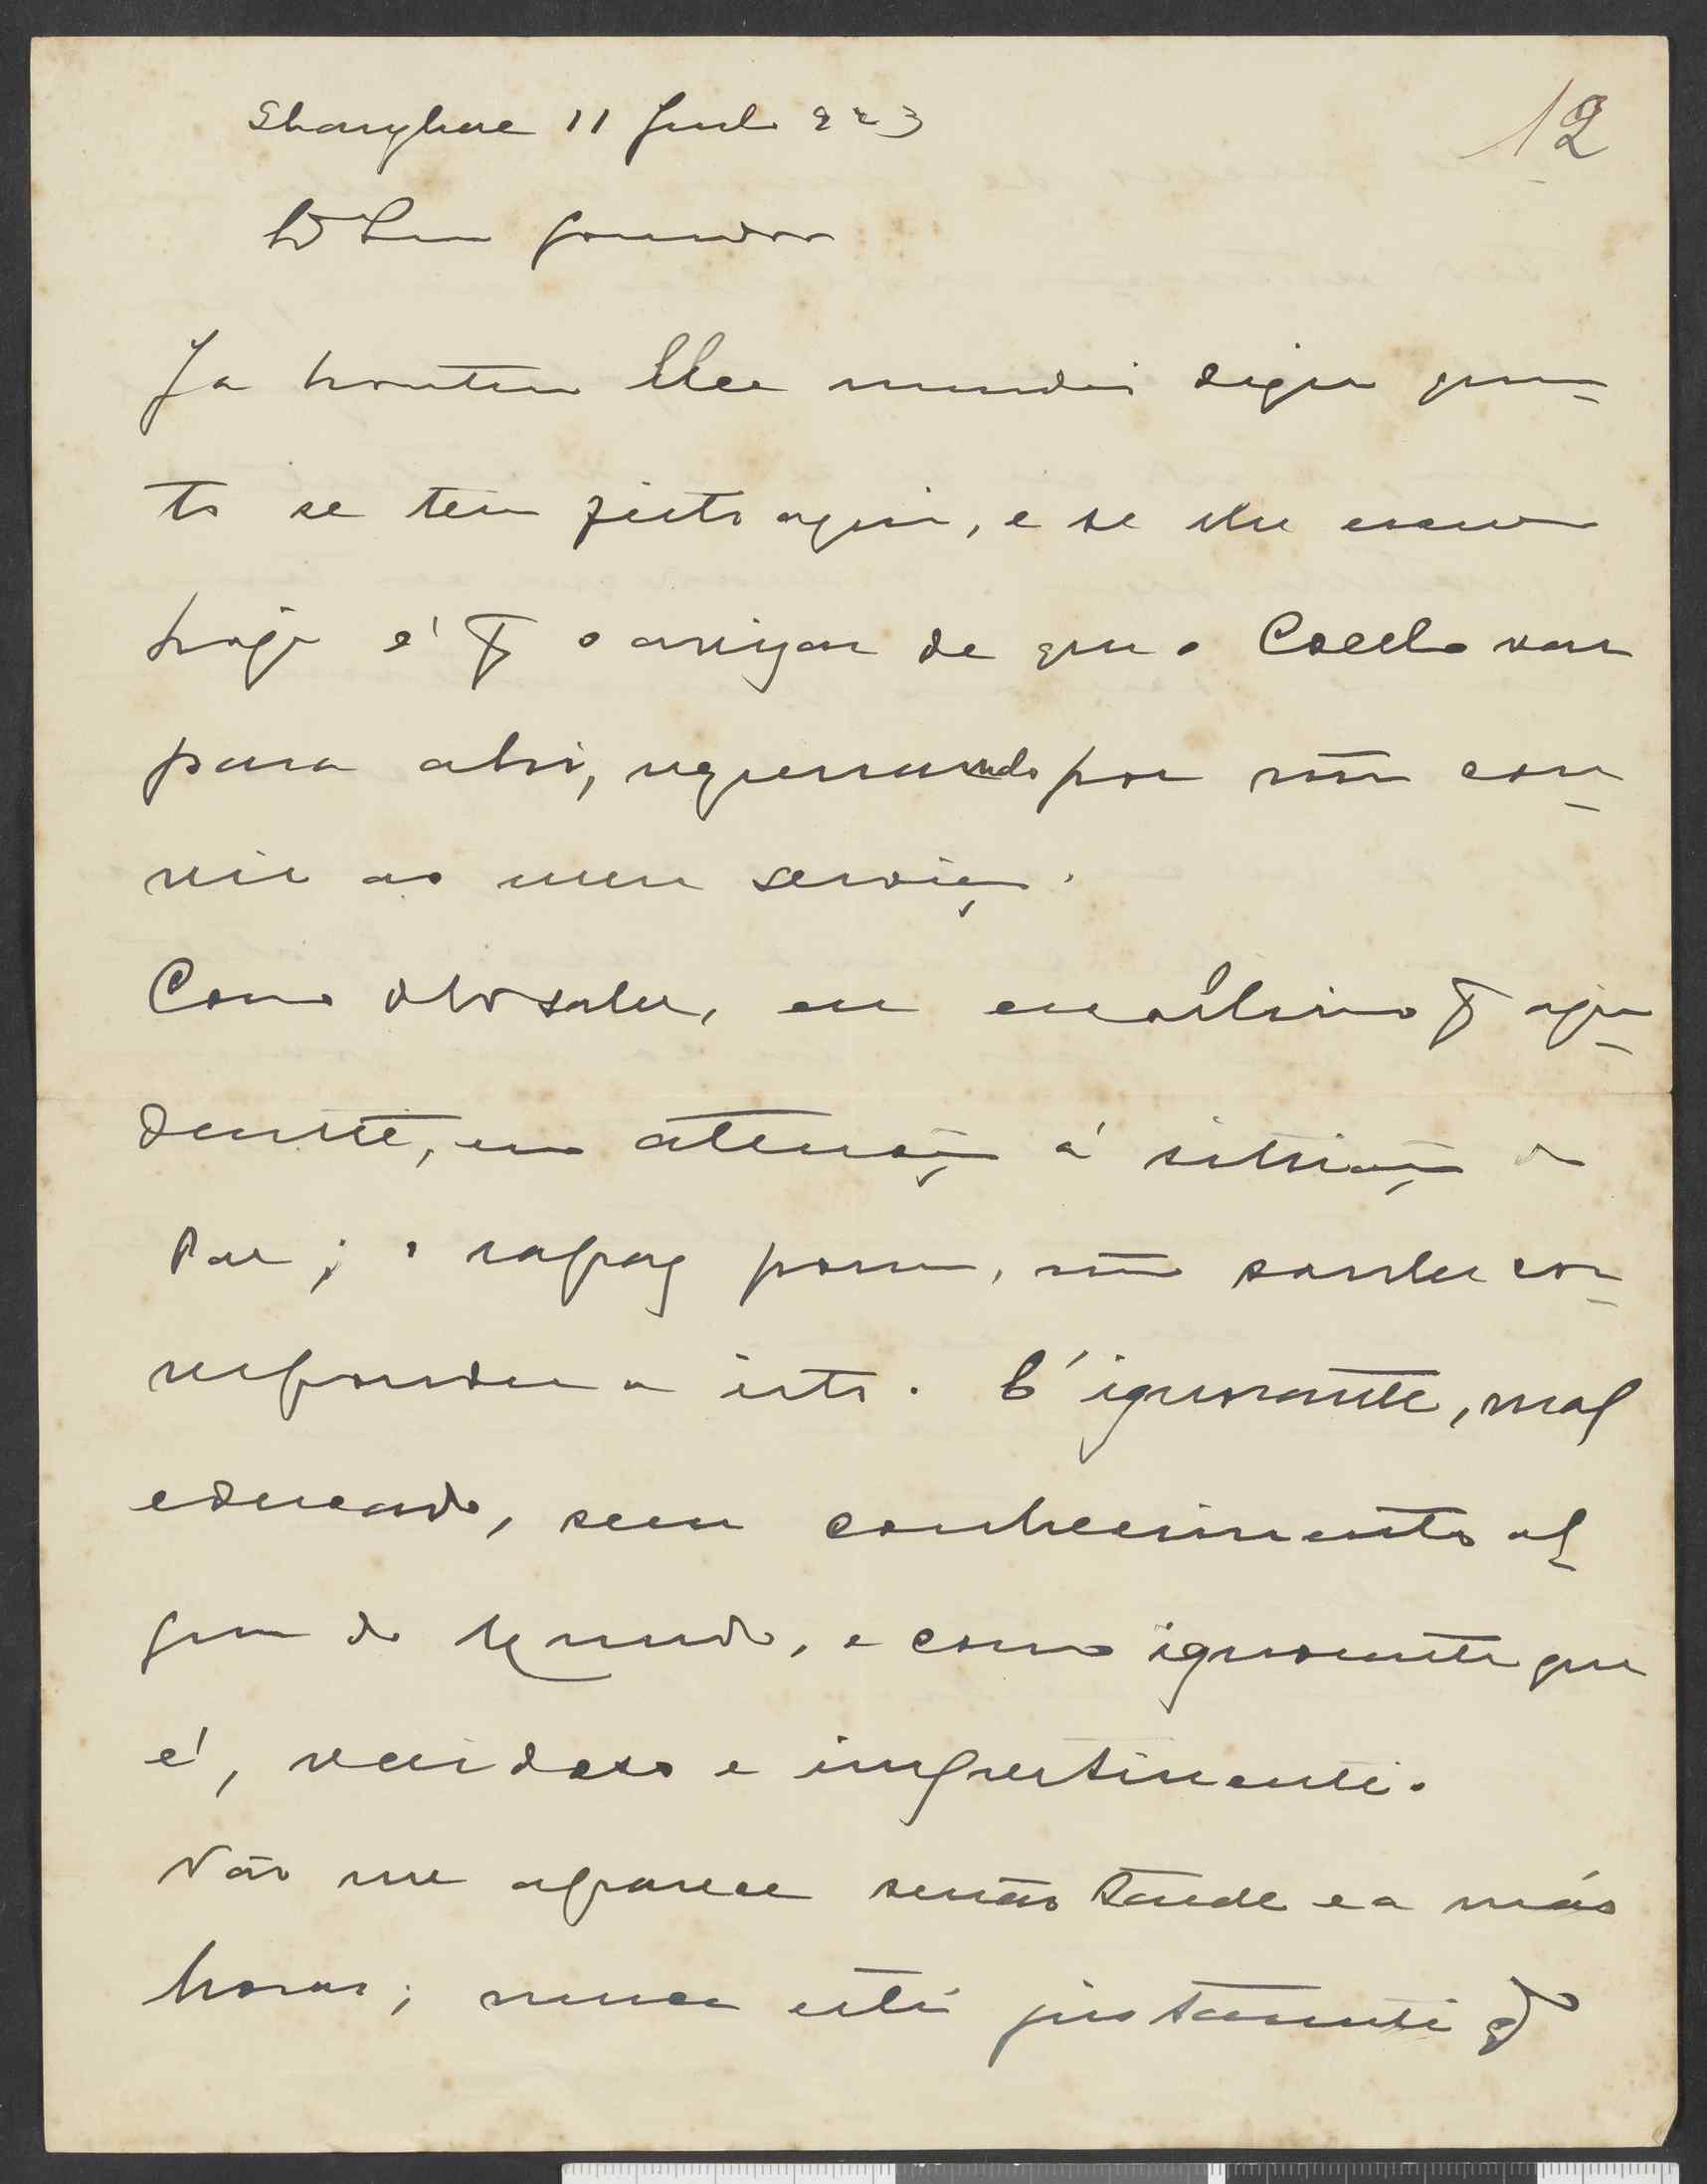 Shanghae 11 Junho 923
12
Ja hontem lhe mandei dizer quan-
to se tem feito aqui, e se lhe escrevo
hoje é o avizar de que o Coelho vae
para ahi, regressando por não con-
vir ao meu serviço.
Como sabe, eu escolhi-o aju-
dante, em atenção á situação do
Pae; o rapaz porem, não soube cor-
responder a isto. É ignorante, mal
educado, sem conhecimento al-
gum do Mundo, e como ignorante que
é, vaidoso e impertinente.
Não me aparece senão tarde e a más
horas; nunca está justamente qdo